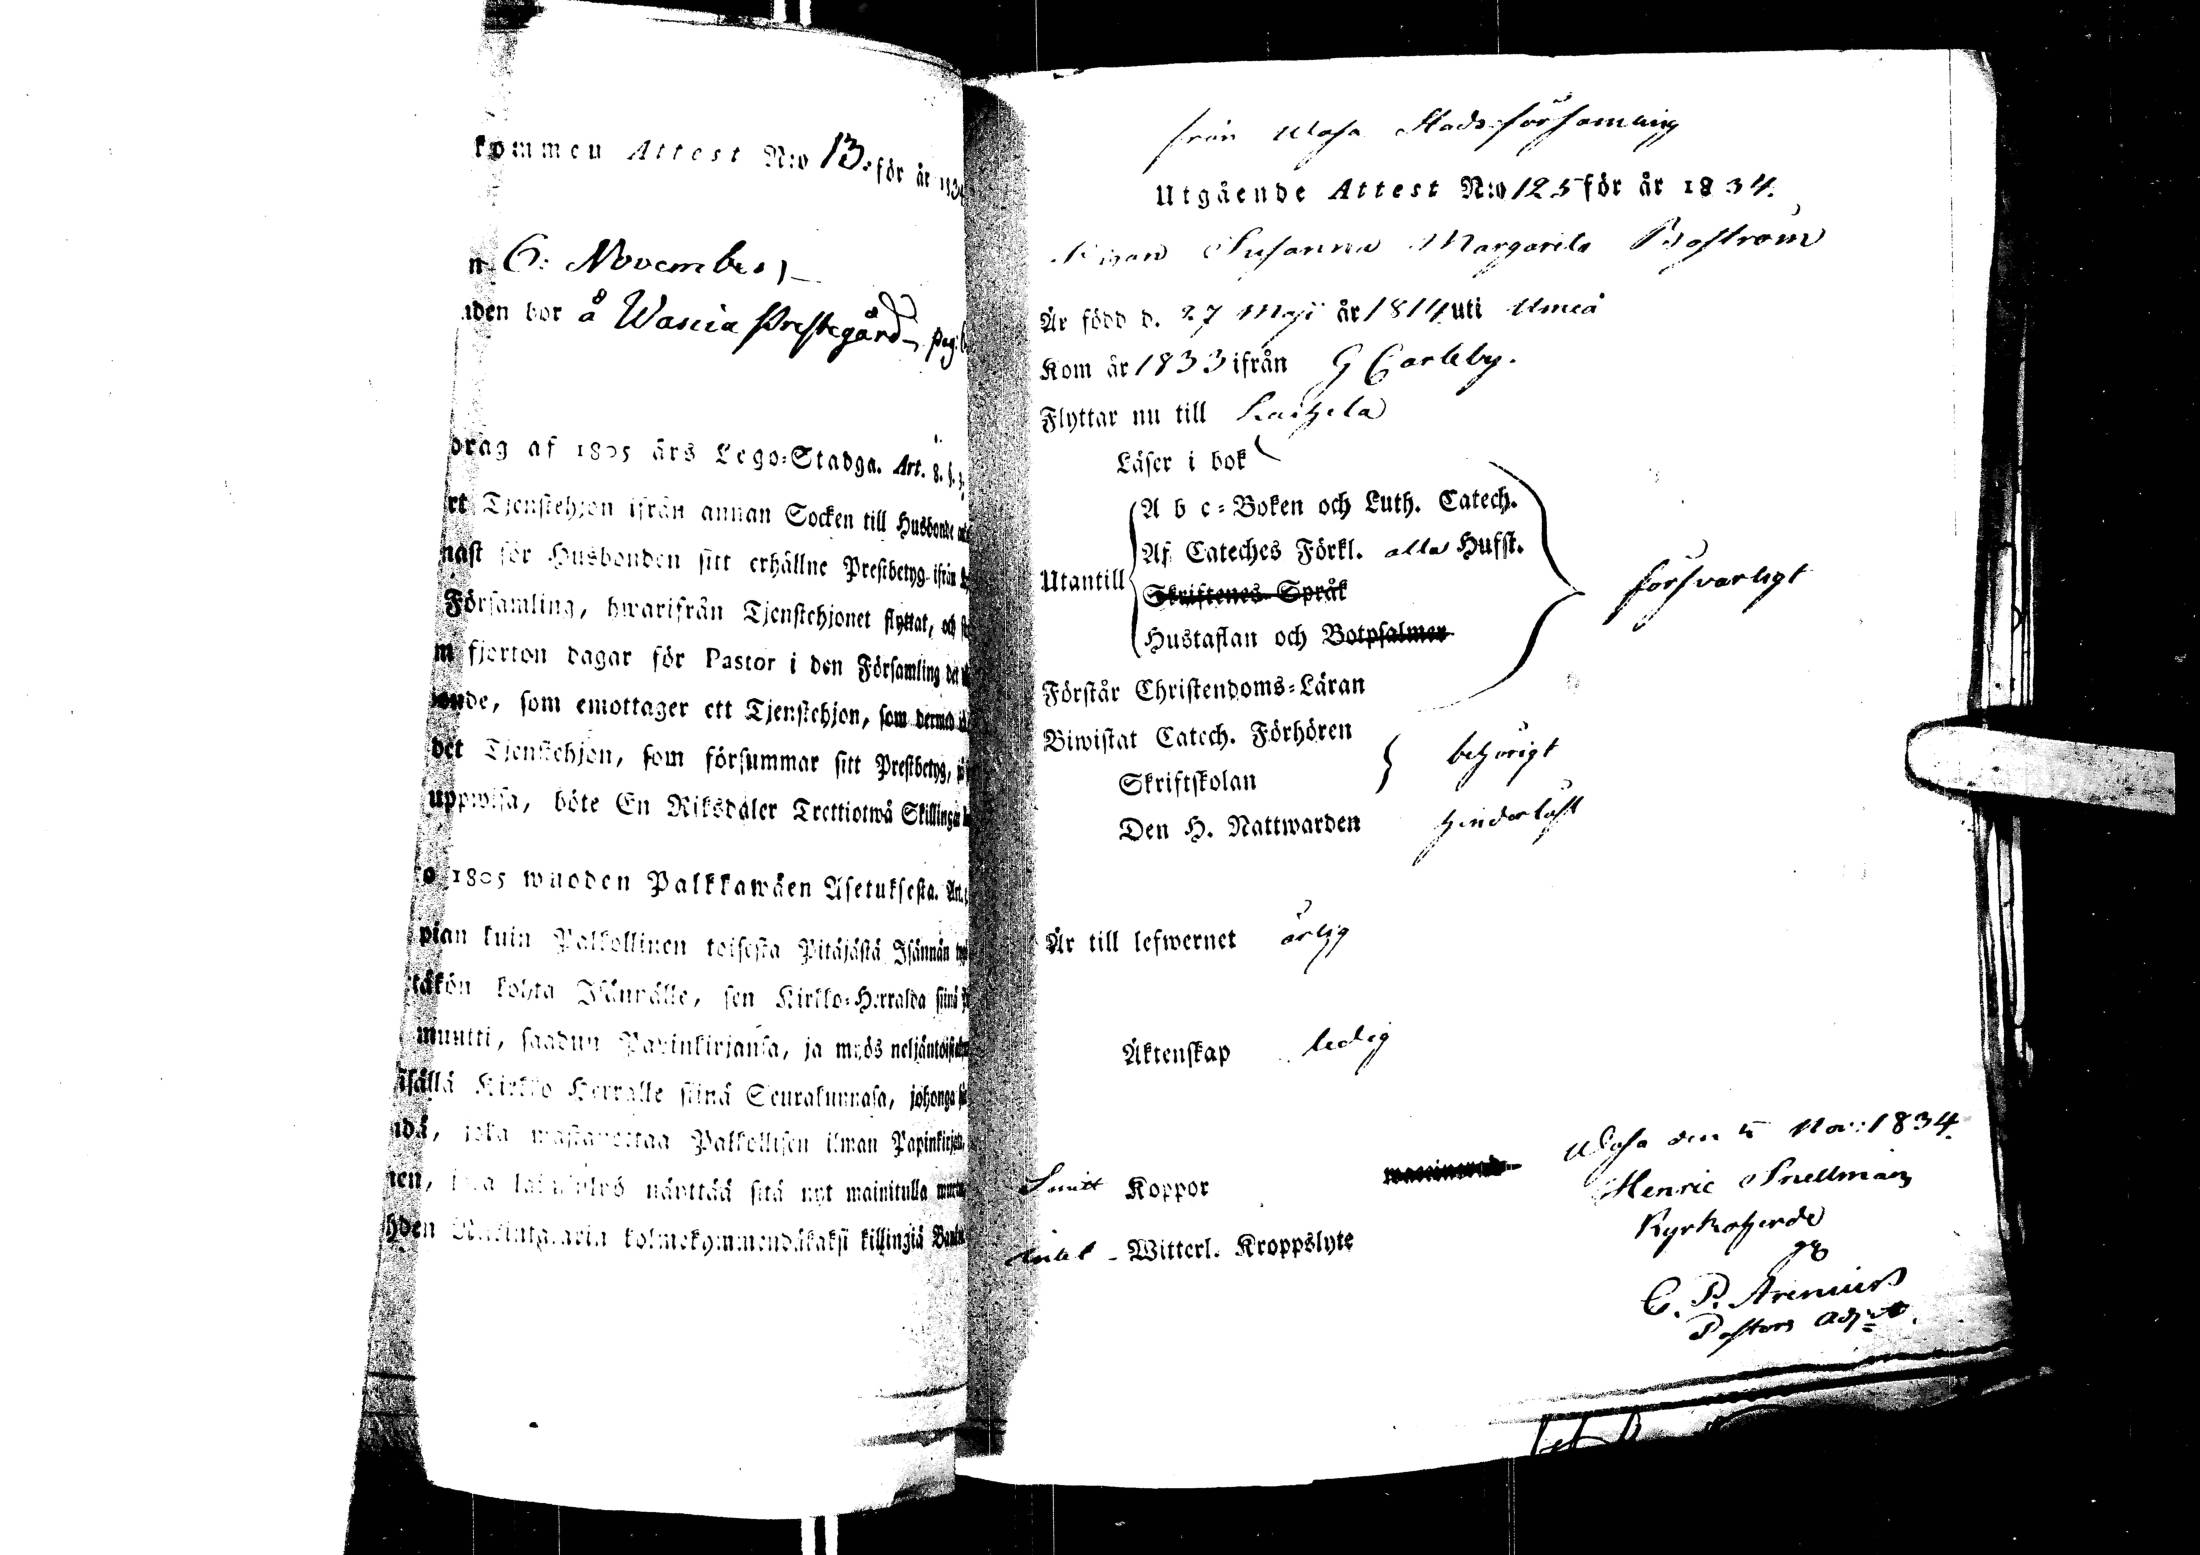 kommen Attest N:o 13: för år 1834
n 6: November,
nden bor å Wasia Prestegård, pag: 6
drag af 1805 års Lego-Stadga. Art. 8. §. 3.
rt Tjenstehjon ifrån annan Socken till Husbonde
nast för Husbonden sitt erhållne Prestbetyg ifrån
Församling, hwarifrån Tjenstehjonet flyttat, och
m fjorton dagar för Pastor i den Församling det
bonde, som emottager ett Tjenstehjon, som dermed
det Tjenstehjon, som försummar sitt Prestbetyg,
uppwisa, böte En Riksdaler Trettiotwå Skillingar
o 1805 wuoden Palkkawäen Asetuksesta. Art.
pian kuin Palkollinen toisesta Pitäjästä Isännän
täkön kohta Isännälle, sen Kirkko-Herralda siinä
muutti, saadun Papinkirjansa, ja myös neljäntoista
sällä Kirkko Herralle siinä Seurakunnasa, johonga
ndä, joka wastanottaa Palkollisen ilman Papinkirjata,
nen, näyttää sitä nyt mainitulla
hden kolmekymmendäkaksi killingiä Banko
från Wasa Stads församling
Utgående Attest N:o 125 för år 1834.
Pigan Susanna Margareta Boström
Är född d. 27 Maji år 1814 uti Umeå
Kom år 1833 ifrån G Carleby.
Flyttar nu till
Läser i bok
Utantill
A b c-Boken och Luth. Catech.
Af Cateches Förkl. alla Hufst.
Skriftenes Språk
Hustaflan och Botpsalmer
försvarligt
Förstår Christendoms-Läran
Biwistat Catech. Förhören
Skriftskolan
behörigt
Den H. Nattwarden hinderlöst
Är till lefwernet ärlig
Äktenskap ledig
Wasa den 5 Nov: 1834.
Smitt Koppor
Henric Snellman
Kyrkoherde
intet - Witterl. Kroppslyte
gm
C. P. Arenius
Pastors Adj:kt.